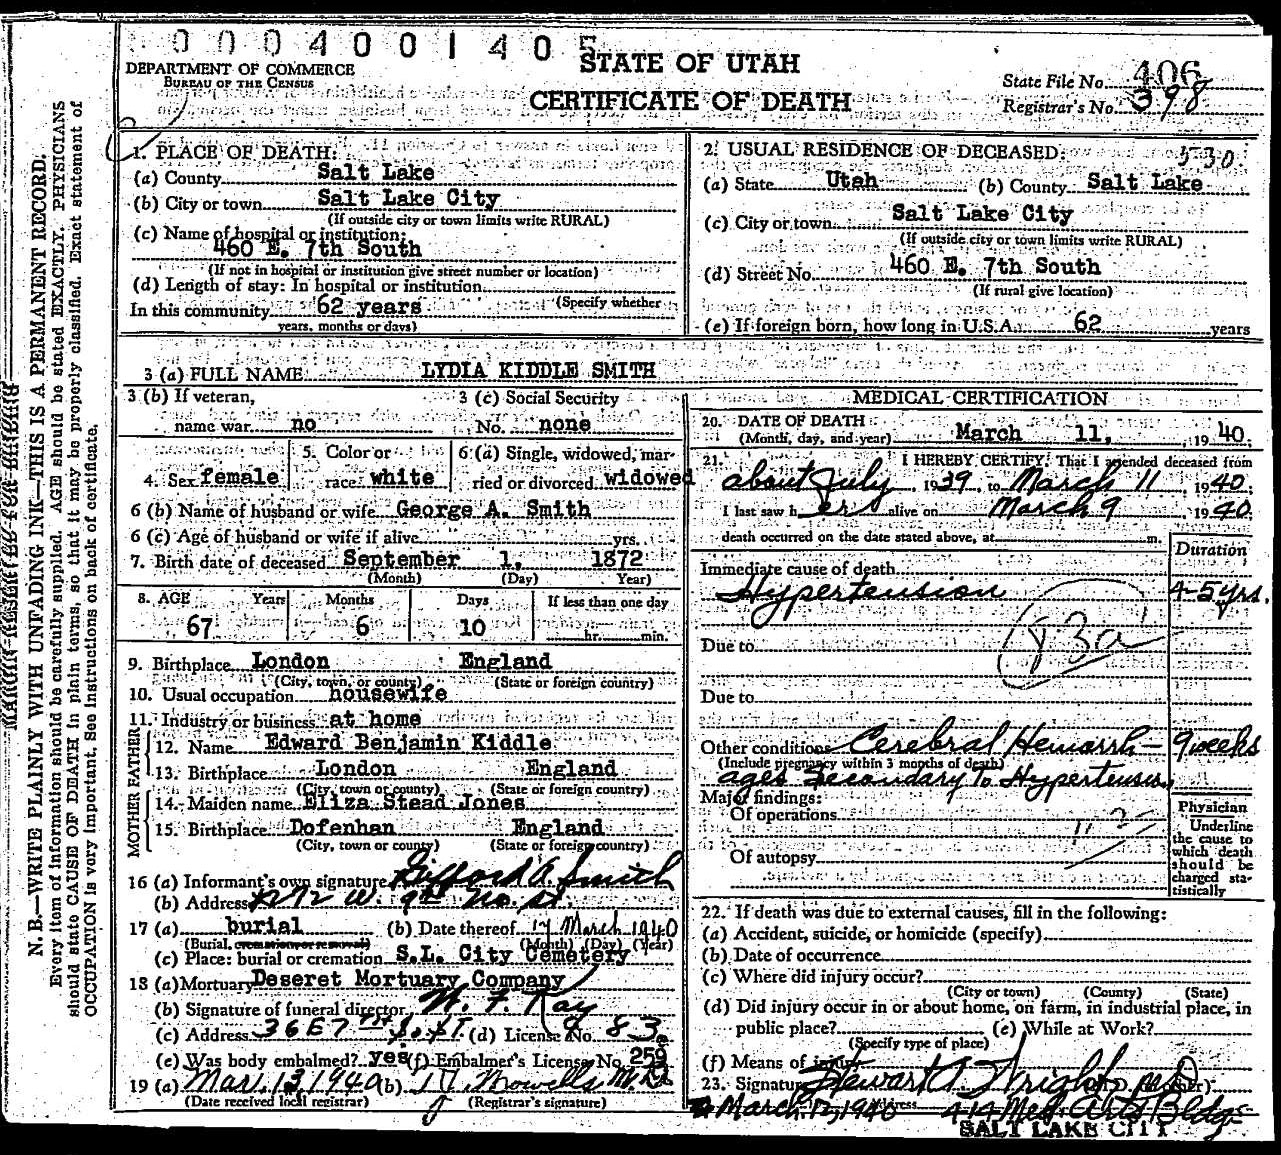 000400140
STATE OF UTAH
CERTIFICATE OF DEATH
DEPARTMENT OF COMMERCE
BUREAU OF THE CENSUS
State File No. 406
Registrar's No. 398
1. PLACE OF DEATH:
(a) County Salt Lake
(b) City or town Salt Lake City
(If outside city or town limits write RURAL)
(c) Name of hospital or institution:
460 E. 7th South
(If not in hospital or institution give street number or location)
(d) Length of stay: In hospital or institution
(Specify whether
In this community 62 years
years, months or days)
2. USUAL RESIDENCE OF DECEASED: 530
(a) State Utah (b) County Salt Lake
(c) City or town Salt Lake City
(If outside city or town limits write RURAL)
(d) Street No. 460 E. 7th South
(If rural give location)
(e) If foreign born, how long in U.S.A. 62 years
3 (a) FULL NAME LYDIA KIDDLE SMITH
3 (b) If veteran,
name war no
3 (c) Social Security
No. none
4. Sex female
5. Color or
race white
6 (a) Single, widowed, mar-
ried or divorced widowed
6 (b) Name of husband or wife George A. Smith
6 (c) Age of husband or wife if alive yrs.
7. Birth date of deceased September 1, 1872
(Month) (Day) Year)
8. AGE Years Months Days If less than one day
67 6 10 hr. min.
9. Birthplace London England
(City, town, or county) (State or foreign country)
10. Usual occupation housewife
11. Industry or business at home
FATHER
12. Name Edward Benjamin Kiddle
13. Birthplace London England
(City, town or county) (State or foreign country)
MOTHER
14. Maiden name Eliza Stead Jones
15. Birthplace Dofenhan England
(City, town or county) (State or foreign country)
16 (a) Informant's own signature Gifford A Smith
(b) Address W. 9th No. St.
17 (a) burial (b) Date thereof March 1940
(Burial, cremation or removal) (Month) (Day) (Year)
(c) Place: burial or cremation S.L. City Cemetery
18 (a) Mortuary Deseret Mortuary Company
(b) Signature of funeral director W. F. Kay
(c) Address 36 E 7th So. St. (d) License No. 83
(e) Was body embalmed? yes (f) Embalmer's License No. 259
19 (a) Mar. 13, 1940 (b) M.D.
(Date received local registrar) (Registrar's signature)
MEDICAL CERTIFICATION
20. DATE OF DEATH
(Month, day, and year) March 11, 1940
21. I HEREBY CERTIFY: That I attended deceased from
about July, 1939, to March 11, 1940
I last saw her alive on March 9 1940
death occurred on the date stated above, at m.
Duration
Immediate cause of death
Hypertension 4-5 yrs.
83a
Due to
Due to
Other conditions Cerebral Hemorrh- 9 weeks
(Include pregnancy within 3 months of death)
ages Secondary to Hypertension
Major findings:
Of operations
Of autopsy
Physician
Underline
the cause to
which death
should be
charged sta-
tistically
22. If death was due to external causes, fill in the following:
(a) Accident, suicide, or homicide (specify)
(b) Date of occurrence
(c) Where did injury occur?
(City or town) (County) (State)
(d) Did injury occur in or about home, on farm, in industrial place, in
public place? (e) While at Work?
(Specify type of place)
(f) Means of injury
23. Signature Stewart A. Wright MD
March 12, 1940 Address 414 Med. Arts Bldg
SALT LAKE CITY
MARGIN RESERVED FOR BINDING
N. B.—WRITE PLAINLY WITH UNFADING INK—THIS IS A PERMANENT RECORD.
Every item of information should be carefully supplied. AGE should be stated EXACTLY. PHYSICIANS
should state CAUSE OF DEATH in plain terms, so that it may be properly classified. Exact statement of
OCCUPATION is very important. See instructions on back of certificate.